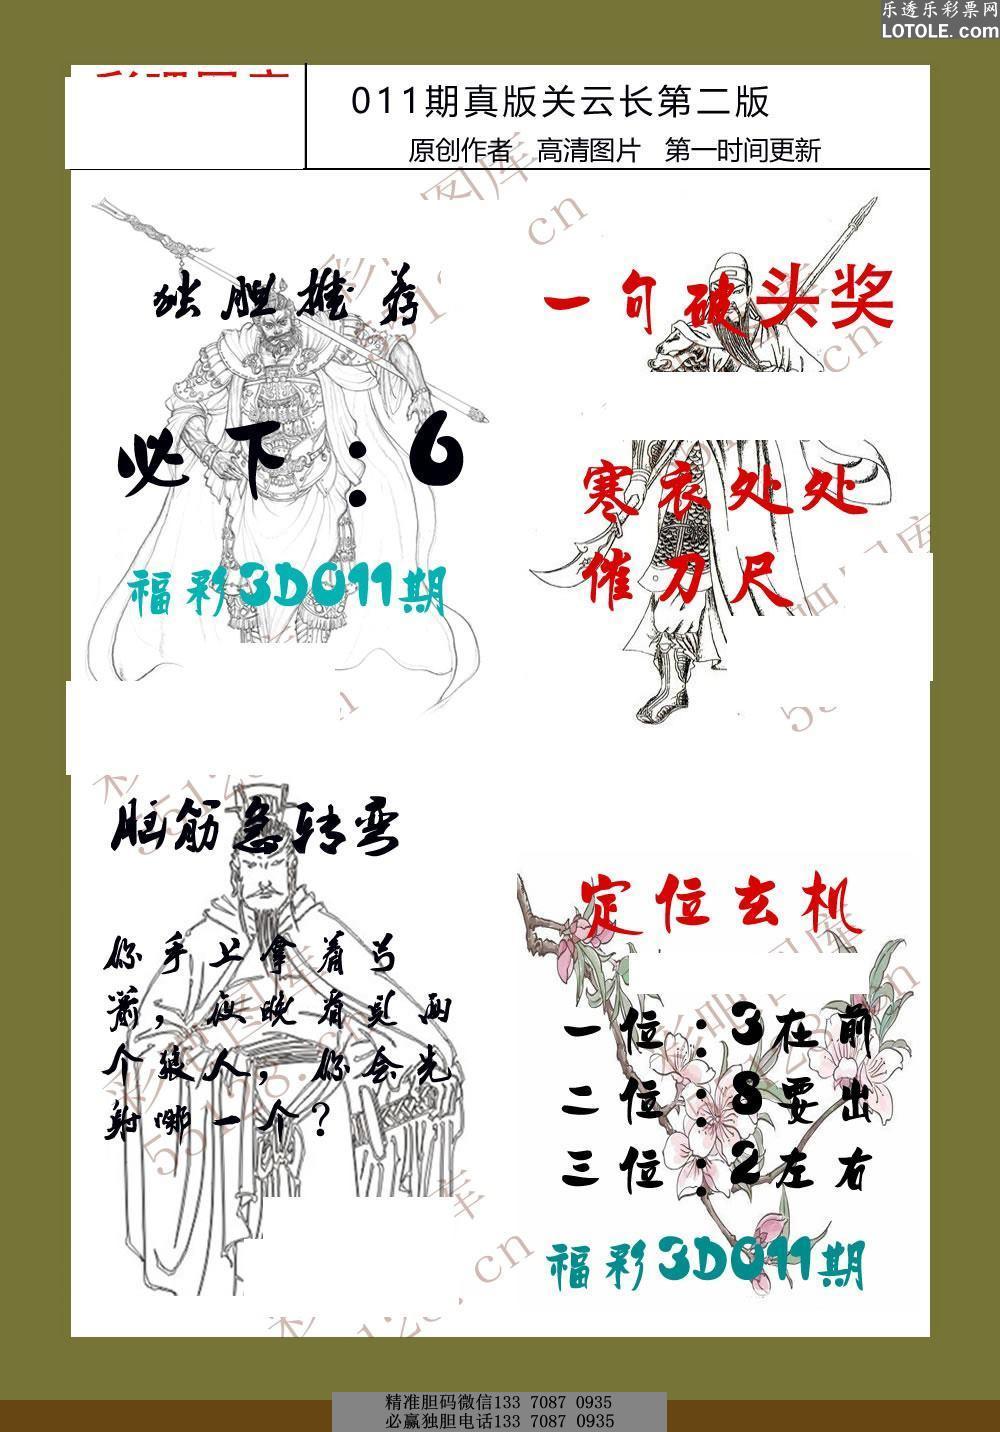 乐透乐彩票网
LOTOLE.com
011期真版关云长第二版
原创作者 高清图片 第一时间更新
独胆推荐
必下：6
福彩3D011期
一句破头奖
寒衣处处
催刀尺
脑筋急转弯
你手上拿着弓
箭，夜晚看见两
个狼人，你会先
射哪一个？
定位玄机
一位：3在前
二位：8要出
三位：2左右
福彩3D011期
精准胆码微信133 7087 0935
必赢独胆电话133 7087 0935